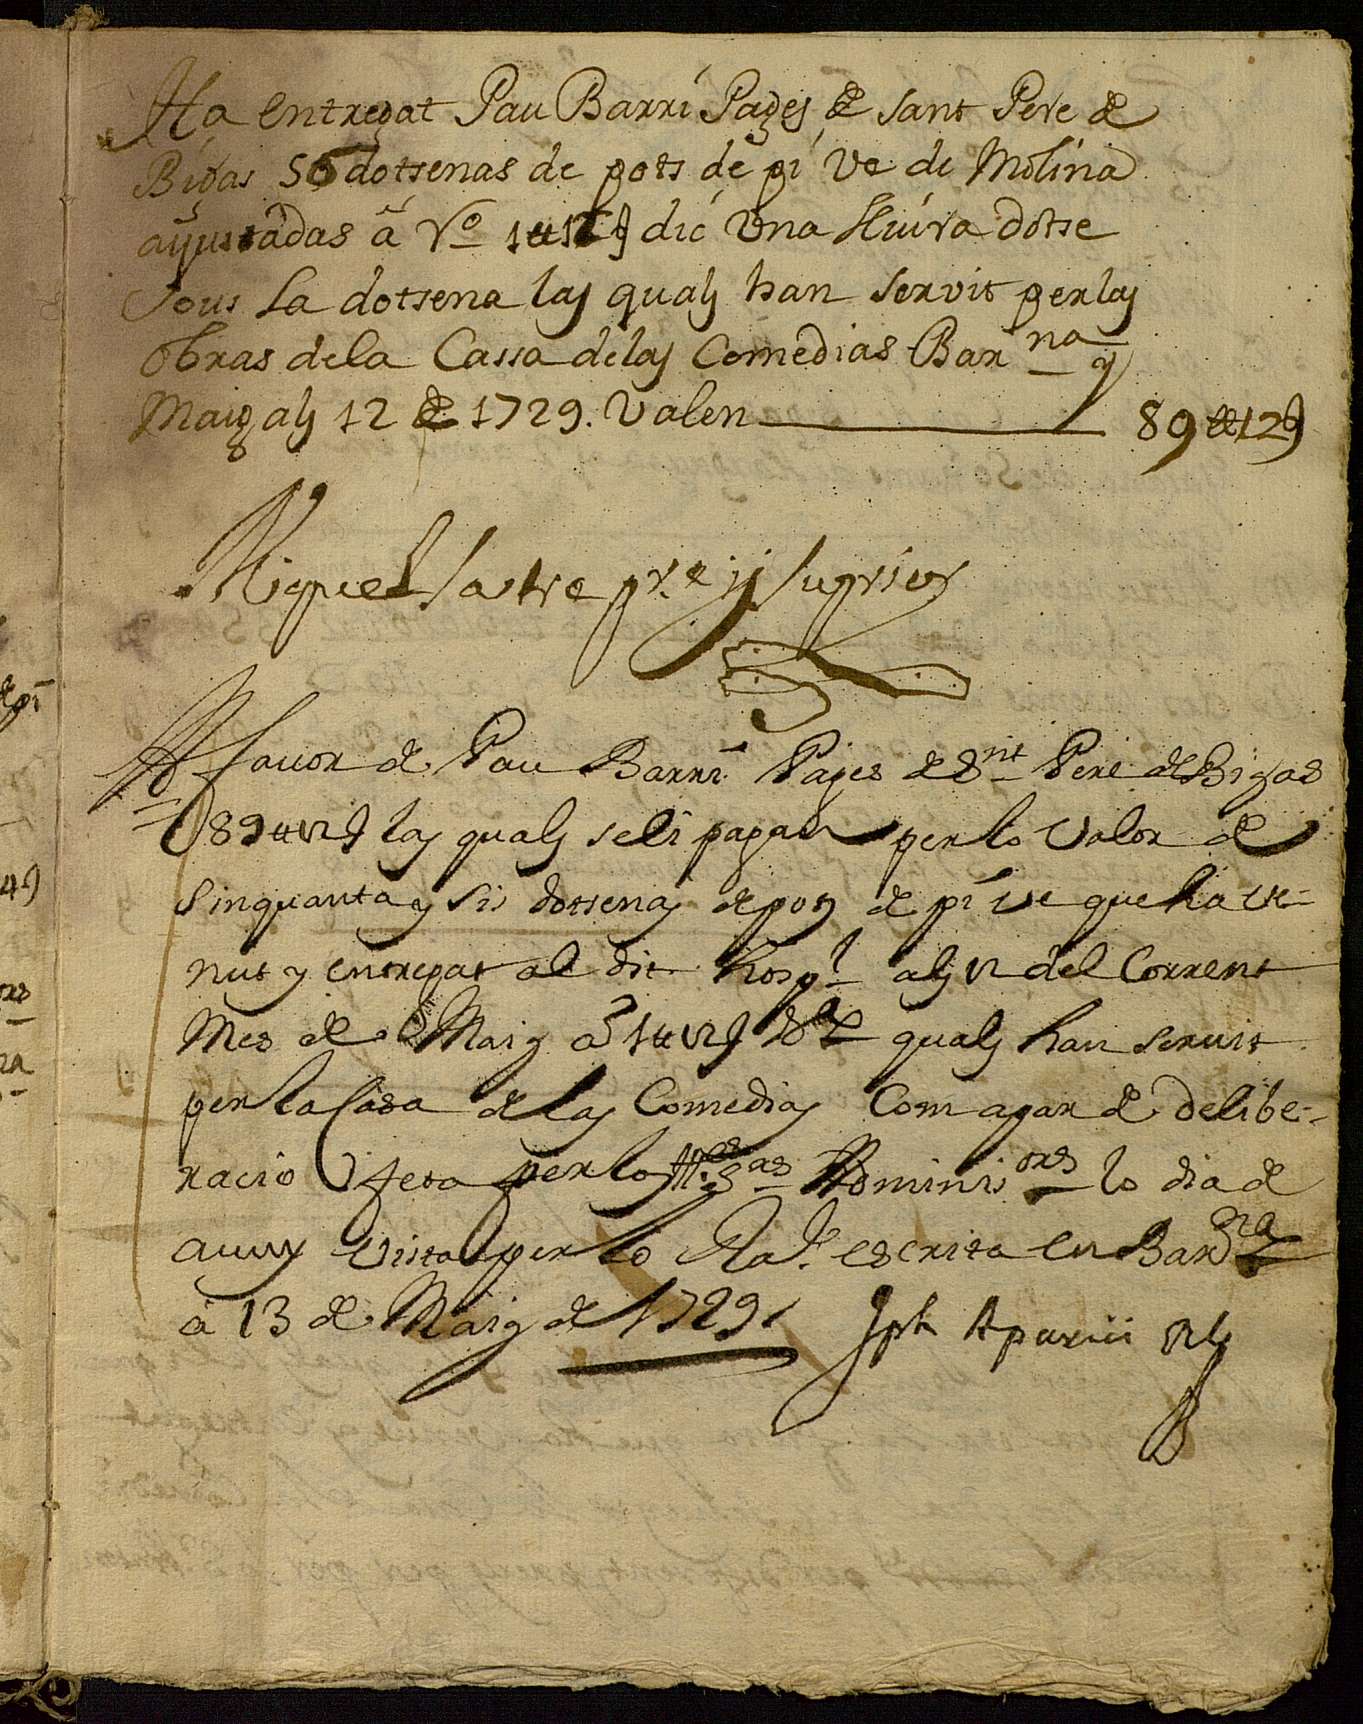 Ha entregat Pau Barri Pages de Sant Pere de
Bigas 56 dotsenas de pots de pi ve de Molina
ajustadas â Ro 1 ll 12 s dic una lliura dotse
Sous La dotsena las quals han servit per las
obras dela Cassa delas Comedias Bar na y
Maig als 12 de 1729. Valen 89 ll 12 s
Miquel Sastre pre y Suprior
A favor de Pau Barri Pages de Snt Pere de Bigas
89 ll 12 s las quals seli pagan per lo Valor de
Sinquanta y Sis dotsenas de pots de pi ve que ha ve-
nut y entregat al dit Hospl als 12 del Corrent
Mes de Maig â 1 ll 12 s quals han servit
per la Casa de las Comedias Com apar de delibe-
racio feta per los Adminisors lo dia de
avuy Vista per lo Ral. escrita en Barna
à 13 de Maig de 1729.
Jph Aparici